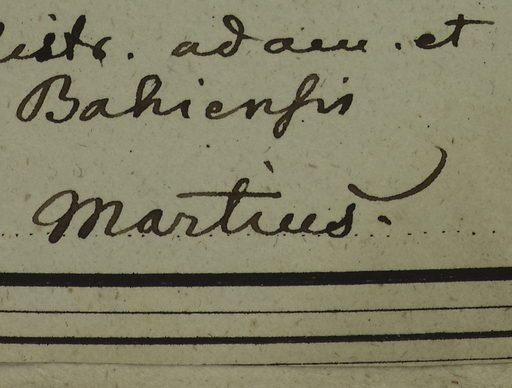 distr. adam. et
Bahiensis
Martius.